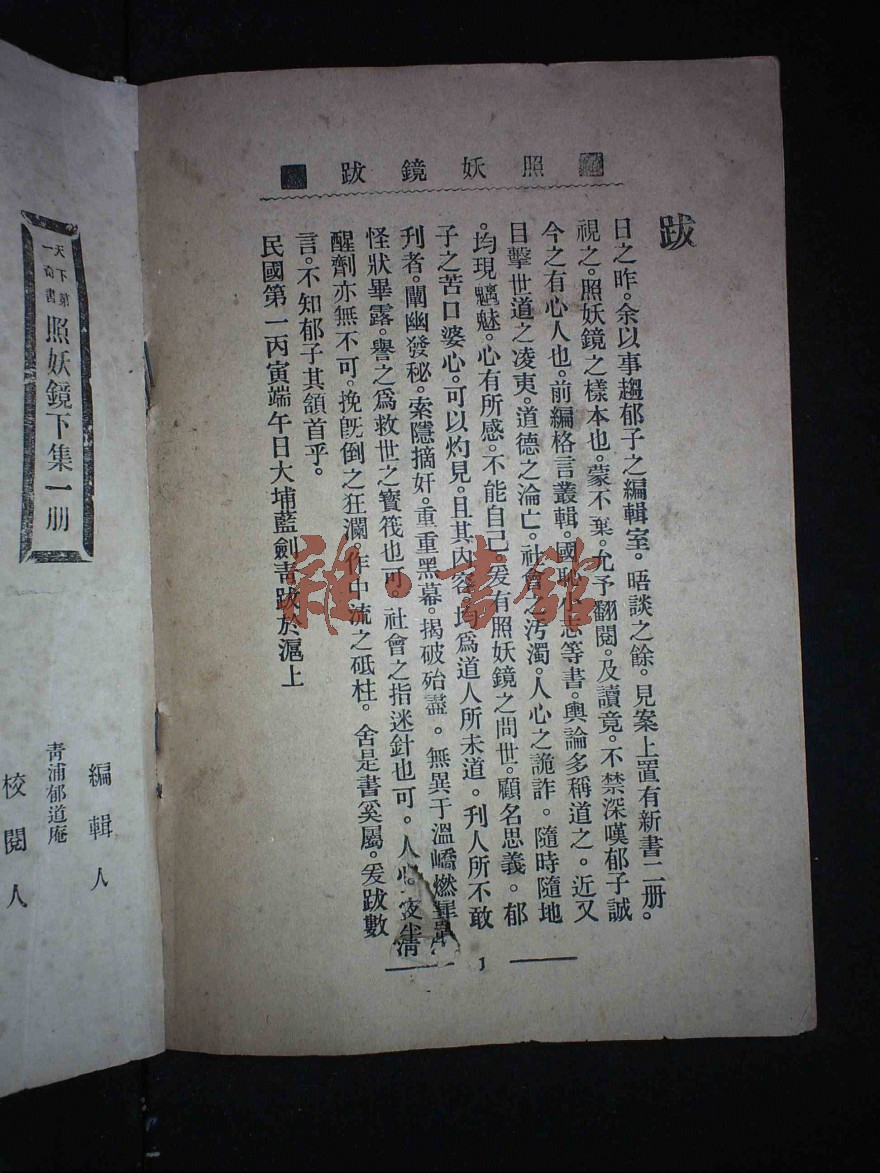 照妖鏡跋
跋
日之昨。余以事趨郁子之編輯室。晤談之餘。見案上置有新書二册。
視之。照妖鏡之樣本也。蒙不棄。允予翻閱。及讀竟。不禁深嘆郁子誠
今之有心人也。前編格言叢輯。國恥小志等書。輿論多稱道之。近又
目擊世道之凌夷。道德之淪亡。社會之汚濁。人心之詭詐。隨時隨地
。均現魑魅。心有所感。不能自己。爰有照妖鏡之問世。顧名思義。郁
子之苦口婆心。可以灼見。且其內容。均爲道人所未道。刋人所不敢
刋者。闡幽發秘。索隱摘奸。重重黑幕。揭破殆盡。無異于溫嶠燃犀
怪狀畢露。譽之爲救世之寳筏也可。社會之指迷針也可。人心夜半淸
醒劑亦無不可。挽旣倒之狂瀾。作中流之砥柱。舍是書奚屬。爰跋數
言。不知郁子其頷首乎。
民國第一丙寅端午日大埔藍劍靑跋於滬上
1
雜·書館
天下第一奇書
照妖鏡下集一册
編輯人
靑浦郁道庵
校閱人